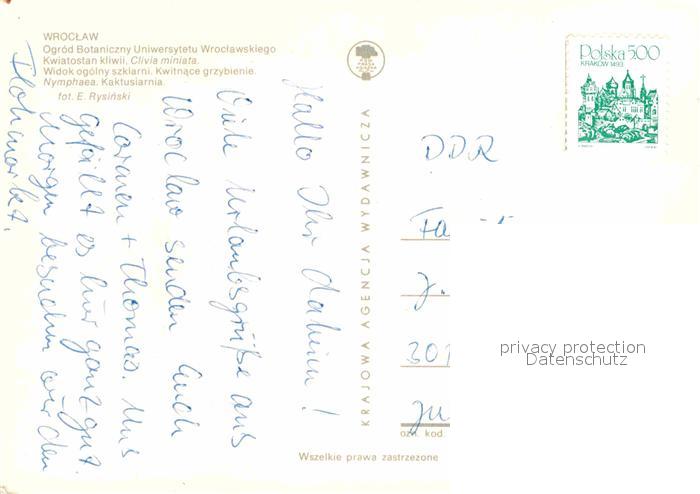 WROCŁAW
Ogród Botaniczny Uniwersytetu Wrocławskiego
Kwiatostan kliwii, Clivia miniata.
Widok ogólny szklarni. Kwitnące grzybienie.
Nymphaea. Kaktusiarnia.
fot. E. Rysiński
Hallo Ihr daheim!
Viele Urlaubsgrüße aus
Wrocław senden Euch
Carmen + Thomas. Uns
gefällt es hier ganz gut.
Morgen besuchen wir den
Flohmarkt.
KRAJOWA AGENCJA WYDAWNICZA
Polska 5.00
KRAKÓW 1493
DDR
Fa
J.
301
Ju
ozn. kod.
privacy protection
Datenschutz
Wszelkie prawa zastrzeżone